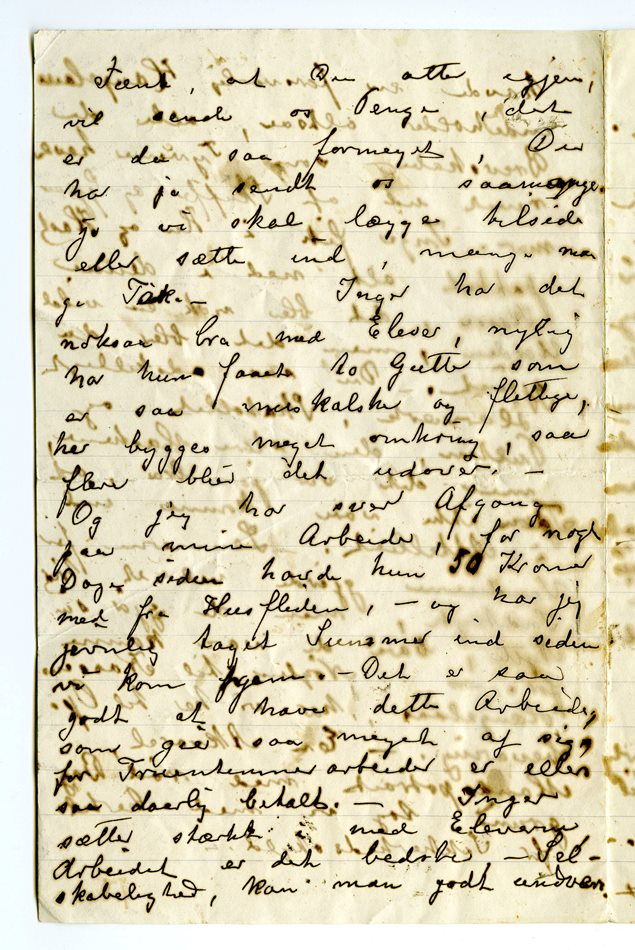 Tænk, at Du atter igjen,
vil sende os Penge, det
er da saa formeget, Du
har jo sendt os saamange
Jo vi skal lægge tilside
eller sætte ind, mange man
ge Tak. — Inger har det
noksaa bra med Elever, nylig
har hun faaet to Gutter som
er saa musikalske og flittige,
her bygges meget omkring, saa
flere blir det udover. —
Og jeg har svær Afgang
paa mine Arbeider, for nogle
Dage siden havde hun 50 Kroner
med fra Husfliden, — og har jeg
jevnlig taget Summer ind siden
vi kom hjem. — Det er saa
godt at have dette Arbeide,
som gir saa meget af sig,
for Fruentimmerarbeider er ellers
saa daarlig betalt. — Inger
sætter stærkt med Eleverne,
Arbeidet er det bedste, — Sel-
skabelighed, kan man godt undvære.